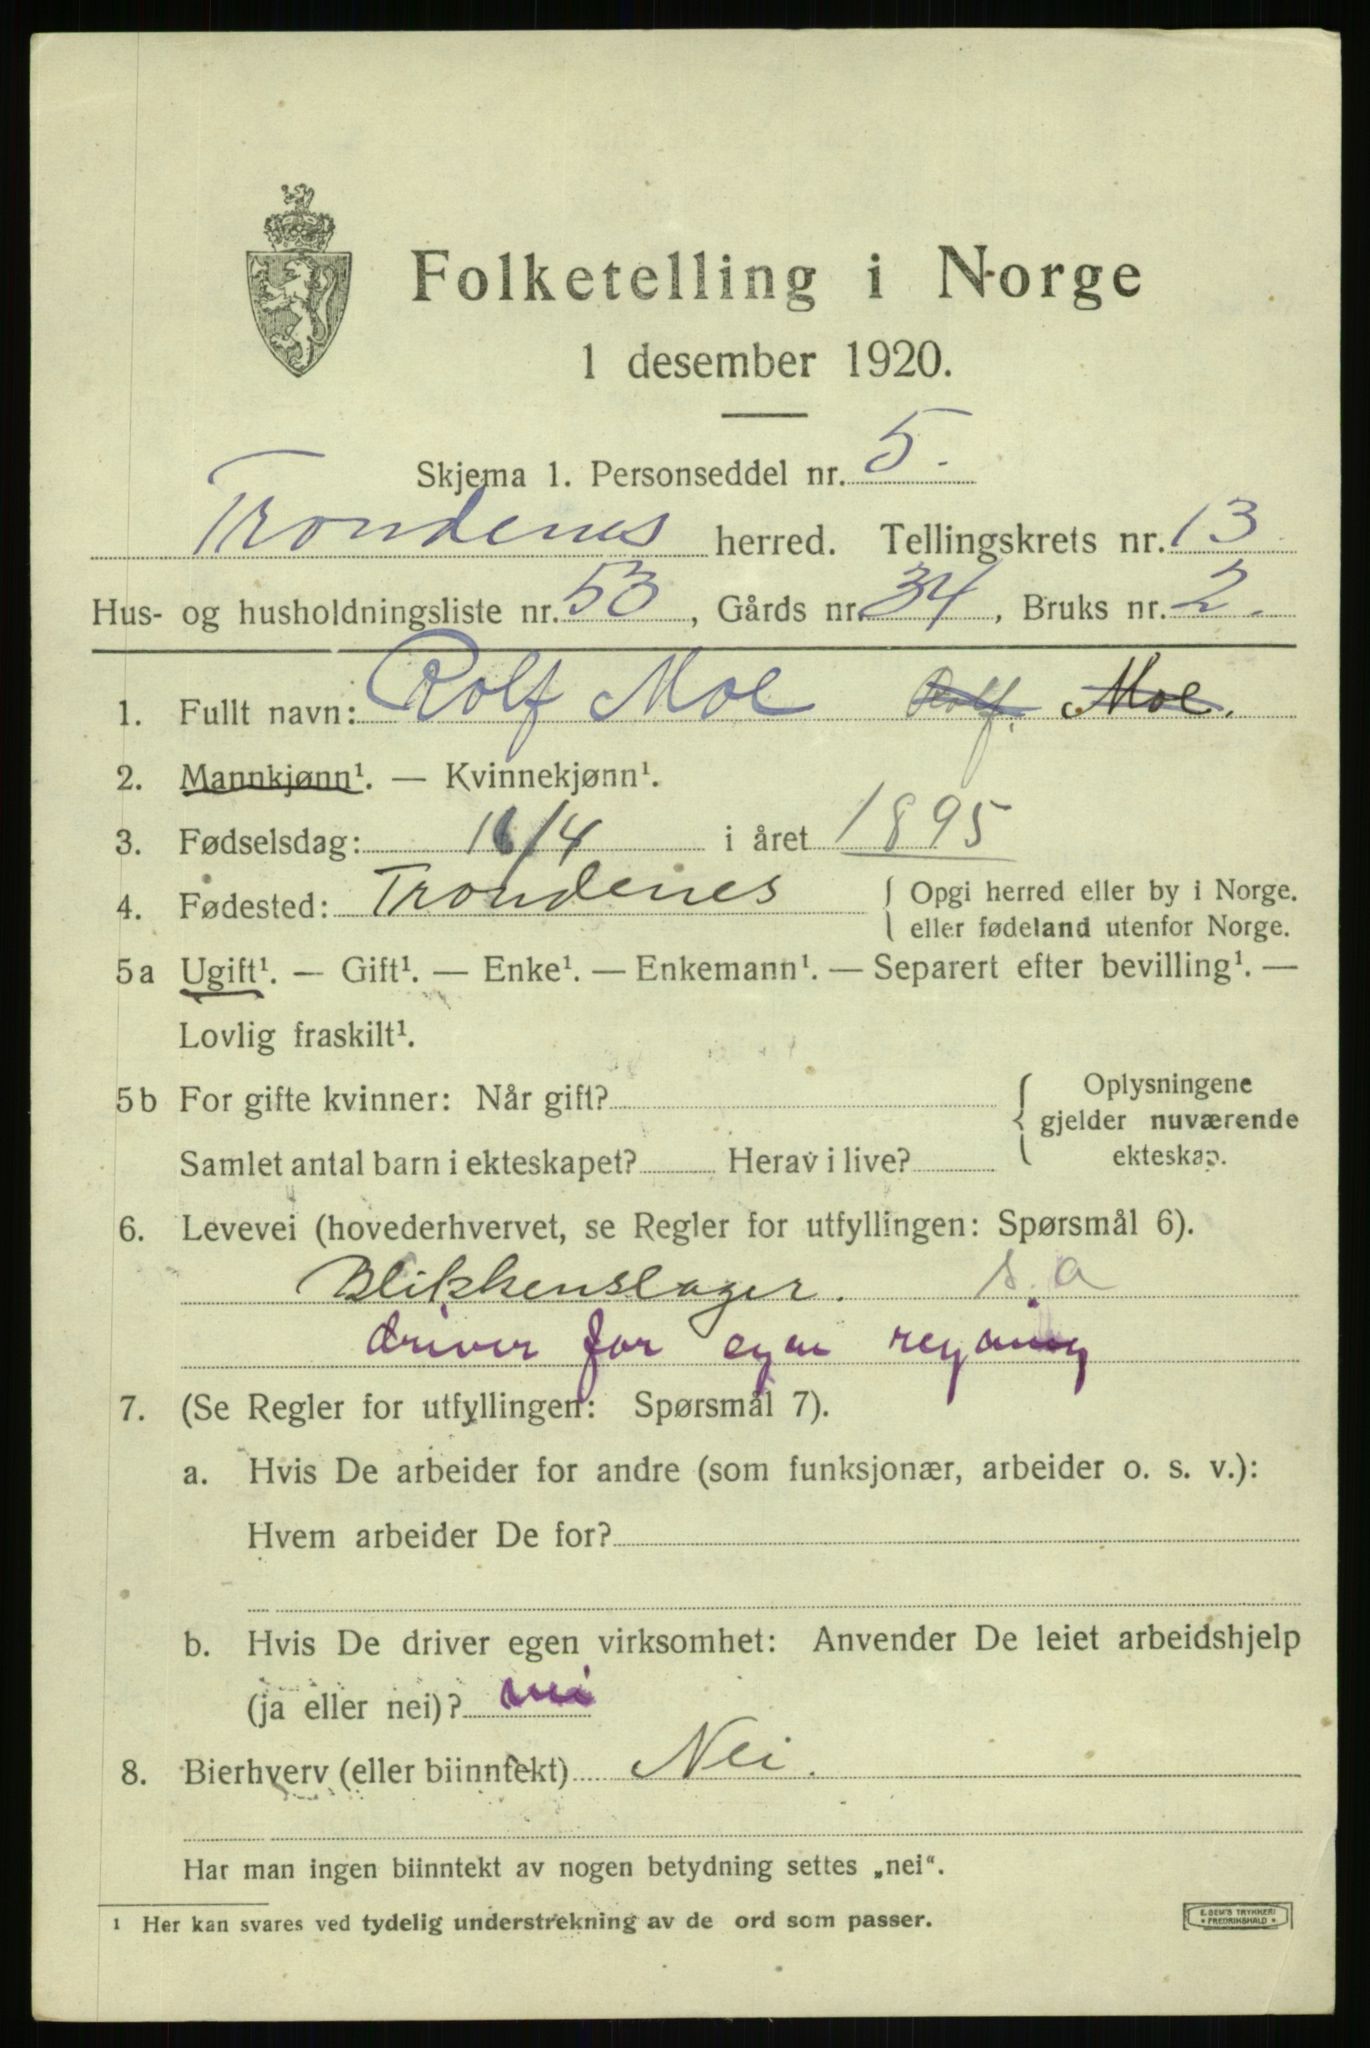 Folketelling i Norge
1 desember 1920.
Skjema 1. Personseddel nr. 5.
Trondenes herred. Tellingskrets nr. 13
Hus- og husholdningsliste nr. 53, Gårds nr. 34, Bruks nr. 2.
1. Fullt navn: Rolf Moe Rolf. Moe.
2. Mannkjønn¹. — Kvinnekjønn¹.
3. Fødselsdag: 16/4 i året 1895
4. Fødested: Trondenes { Opgi herred eller by i Norge.
eller fødeland utenfor Norge.
5a Ugift¹. — Gift¹. — Enke¹. — Enkemann¹. — Separert efter bevilling¹. —
Lovlig fraskilt¹.
5b For gifte kvinner: Når gift? { Oplysningene
gjelder nuværende
Samlet antal barn i ekteskapet? Herav i live? ekteskap.
6. Levevei (hovederhvervet, se Regler for utfyllingen: Spørsmål 6).
Blikkenslager. s. a
driver for egen regning
7. (Se Regler for utfyllingen: Spørsmål 7).
a. Hvis De arbeider for andre (som funksjonær, arbeider o. s. v.):
Hvem arbeider De for?
b. Hvis De driver egen virksomhet: Anvender De leiet arbeidshjelp
(ja eller nei)? nei
8. Bierhverv (eller biinntekt) Nei.
Har man ingen biinntekt av nogen betydning settes „nei“.
¹ Her kan svares ved tydelig understrekning av de ord som passer.
E. SEM'S TRYKKERI
* FREDRIKSHALD *